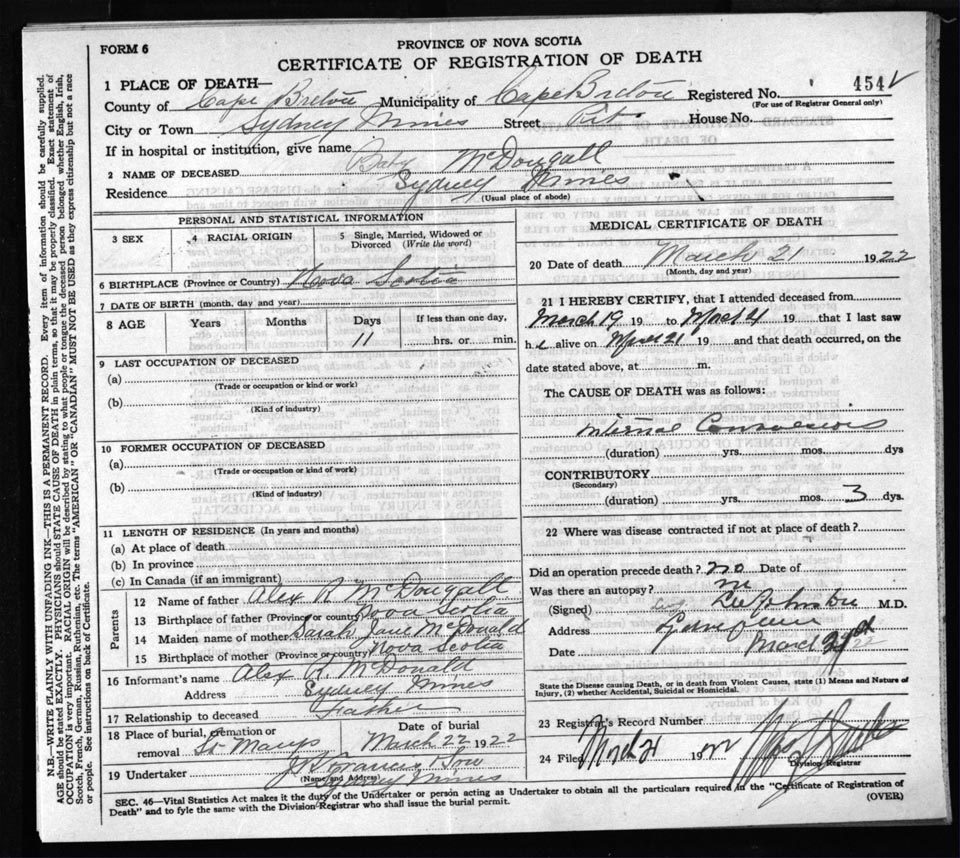 FORM 6
PROVINCE OF NOVA SCOTIA
CERTIFICATE OF REGISTRATION OF DEATH
1 PLACE OF DEATH—
County of Cape Breton Municipality of Cape Breton Registered No. 454
(For use of Registrar General only)
City or Town Sydney Mines Street Pit House No.
If in hospital or institution, give name
2 NAME OF DECEASED Baby McDougall
Residence Sydney Mines
(Usual place of abode)
PERSONAL AND STATISTICAL INFORMATION
3 SEX 4 RACIAL ORIGIN 5 Single, Married, Widowed or Divorced (Write the word)
6 BIRTHPLACE (Province or Country) Nova Scotia
7 DATE OF BIRTH (month, day and year)
8 AGE Years Months Days If less than one day,
11 hrs. or min.
9 LAST OCCUPATION OF DECEASED
(a)
(Trade or occupation or kind or work)
(b)
(Kind of industry)
10 FORMER OCCUPATION OF DECEASED
(a)
(Trade or occupation or kind or work)
(b)
(Kind of industry)
11 LENGTH OF RESIDENCE (In years and months)
(a) At place of death
(b) In province
(c) In Canada (if an immigrant)
Parents
12 Name of father Alex R McDougall
13 Birthplace of father (Province or country) Nova Scotia
14 Maiden name of mother Sarah Jane McDonald
15 Birthplace of mother (Province or country) Nova Scotia
16 Informant's name Alex R. McDonald
Address Sydney Mines
17 Relationship to deceased Father
18 Place of burial, cremation or removal St Marys Date of burial March 22 1922
19 Undertaker
(Name and Address)
Sydney Mines
MEDICAL CERTIFICATE OF DEATH
20 Date of death March 21 1922
(Month, day and year)
21 I HEREBY CERTIFY, that I attended deceased from
March 19 19 to March 21 19 that I last saw
h e alive on March 21 19 and that death occurred, on the
date stated above, at m.
The CAUSE OF DEATH was as follows:
Internal Convulsions
(duration) yrs. mos. dys
CONTRIBUTORY
(Secondary)
(duration) yrs. mos. 3 dys.
22 Where was disease contracted if not at place of death?
Did an operation precede death? no Date of
Was there an autopsy? no
(Signed) M.D.
Address
Date March 22
State the Disease causing Death, or in death from Violent Causes, state (1) Means and Nature of Injury, (2) whether Accidental, Suicidal or Homicidal.
23 Registrar's Record Number
24 Filed March 21 19
Division Registrar
SEC. 46—Vital Statistics Act makes it the duty of the Undertaker or person acting as Undertaker to obtain all the particulars required in the "Certificate of Registration of
Death" and to fyle the same with the Division Registrar who shall issue the burial permit. (OVER)
N.B.—WRITE PLAINLY WITH UNFADING INK—THIS IS A PERMANENT RECORD. Every item of information should be carefully supplied.
AGE should be stated EXACTLY. PHYSICIANS should STATE CAUSE OF DEATH in plain terms, so that it may be properly classified. Exact statement of
OCCUPATION is very important. RACIAL ORIGIN will be described by stating to what people or tongue the deceased person belonged whether English, Irish,
Scotch, French, German, Russian, Ruthenian, etc. The terms "AMERICAN" OR "CANADIAN" MUST NOT BE USED as they express citizenship but not a race
or people. See instructions on back of Certificate.